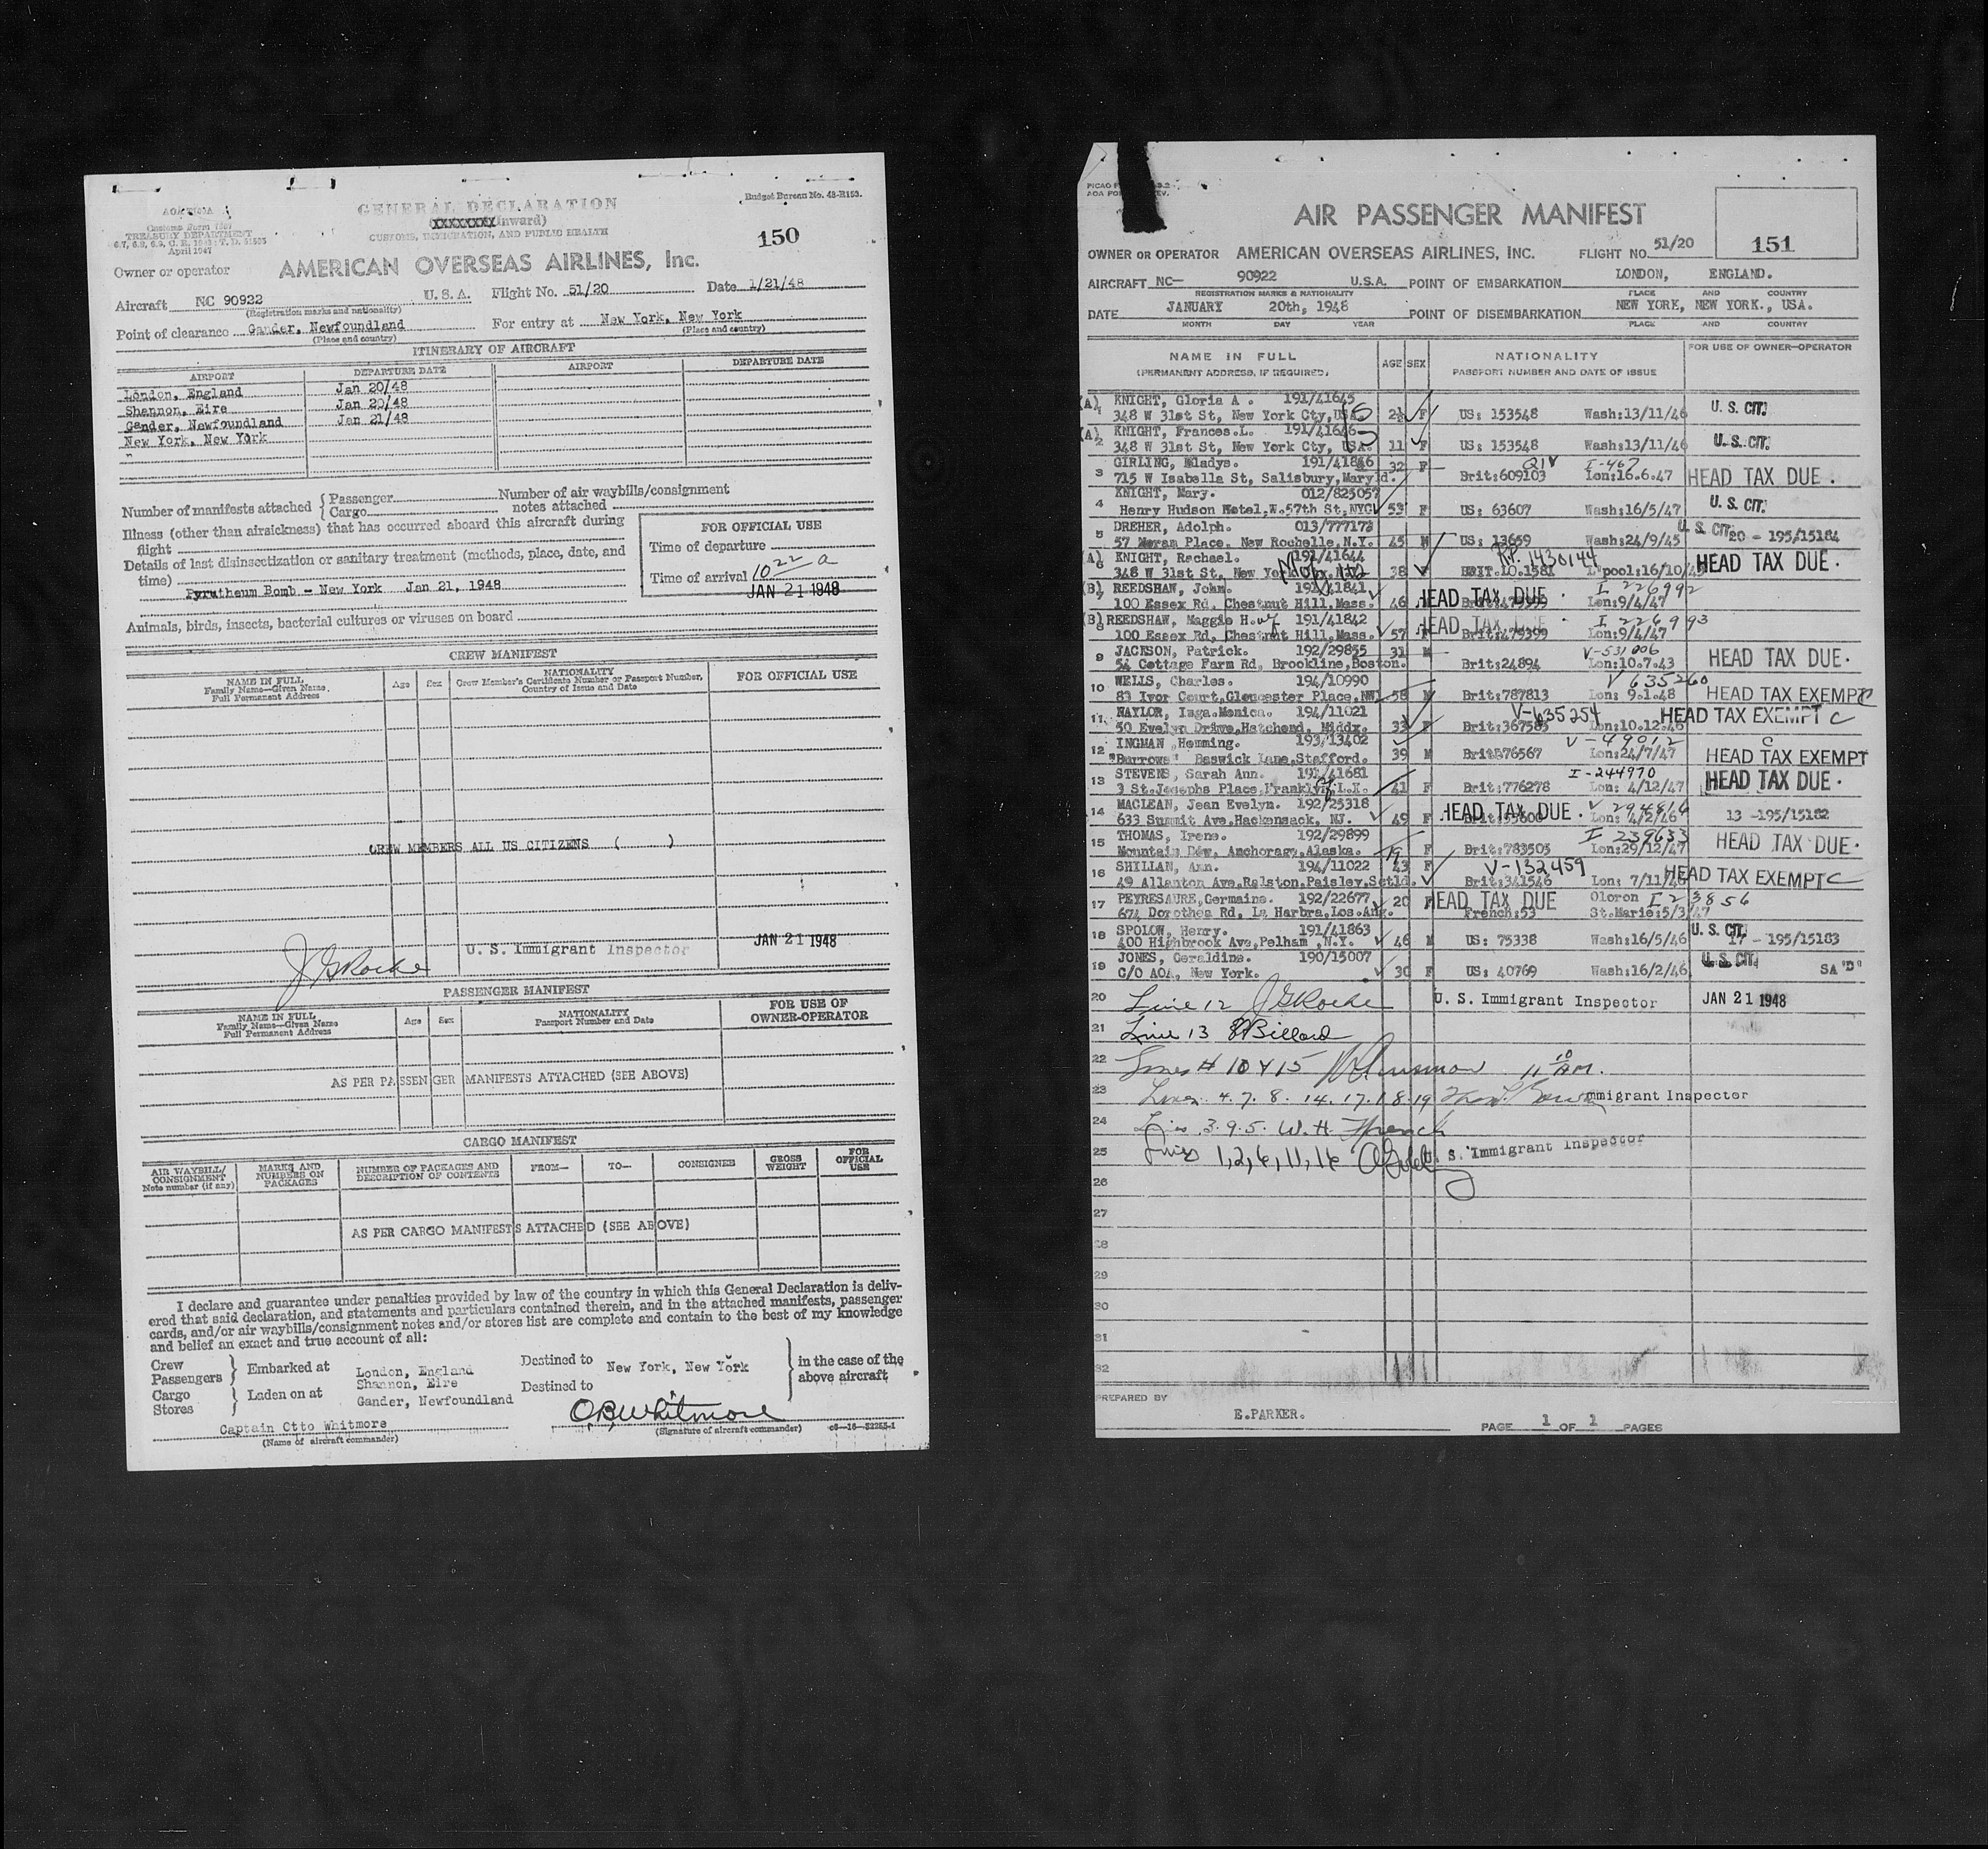 AOA
Customs Form 7507
TREASURY DEPARTMENT
April 1947
GENERAL DECLARATION
XXXXXXXX Inward)
CUSTOMS, IMMIGRATION, AND PUBLIC HEALTH
Budget Bureau No. 48-R153.
150
Owner or operator AMERICAN OVERSEAS AIRLINES, Inc.
Aircraft NC 90922 U.S.A. Flight No. 51/20 Date 1/21/48
(Registration marks and nationality)
Point of clearance Gander, Newfoundland For entry at New York, New York
(Place and country) (Place and country)
ITINERARY OF AIRCRAFT
AIRPORT DEPARTURE DATE AIRPORT DEPARTURE DATE
London, England Jan 20/48
Shannon, Eire Jan 20/48
Gander, Newfoundland Jan 21/48
New York, New York
"
Number of manifests attached { Passenger Number of air waybills/consignment
Cargo notes attached
Illness (other than airsickness) that has occurred aboard this aircraft during
flight
Details of last disinsectization or sanitary treatment (methods, place, date, and
time)
Pyrutheum Bomb - New York Jan 21, 1948
Animals, birds, insects, bacterial cultures or viruses on board
FOR OFFICIAL USE
Time of departure
Time of arrival 10 22 a
JAN 21 1948
CREW MANIFEST
NAME IN FULL
Family Name—Given Name
Full Permanent Address
Age Sex
NATIONALITY
Crew Member's Certificate Number or Passport Number,
Country of Issue and Date
FOR OFFICIAL USE
CREW MEMBERS ALL US CITIZENS ( )
J G Roche U. S. Immigrant Inspector JAN 21 1948
PASSENGER MANIFEST
NAME IN FULL
Family Name—Given Name
Full Permanent Address
Age Sex
NATIONALITY
Passport Number and Date
FOR USE OF
OWNER-OPERATOR
AS PER PASSENGER MANIFESTS ATTACHED (SEE ABOVE)
CARGO MANIFEST
AIR WAYBILL/
CONSIGNMENT
Note number (if any)
MARKS AND
NUMBERS ON
PACKAGES
NUMBER OF PACKAGES AND
DESCRIPTION OF CONTENTS
FROM— TO— CONSIGNEE
GROSS
WEIGHT
FOR
OFFICIAL
USE
AS PER CARGO MANIFESTS ATTACHED (SEE ABOVE)
I declare and guarantee under penalties provided by law of the country in which this General Declaration is deliv-
ered that said declaration, and statements and particulars contained therein, and in the attached manifests, passenger
cards, and/or air waybills/consignment notes and/or stores list are complete and contain to the best of my knowledge
and belief an exact and true account of all:
Crew
Passengers } Embarked at London, England Destined to New York, New York } in the case of the
Shannon, Eire above aircraft
Cargo
Stores } Laden on at Gander, Newfoundland Destined to
Captain Otto Whitmore O.B. Whitmore
(Name of aircraft commander) (Signature of aircraft commander)
AIR PASSENGER MANIFEST
151
OWNER OR OPERATOR AMERICAN OVERSEAS AIRLINES, INC. FLIGHT NO. 51/20
AIRCRAFT NC— 90922 U.S.A. POINT OF EMBARKATION LONDON, ENGLAND.
REGISTRATION MARKS & NATIONALITY PLACE AND COUNTRY
DATE JANUARY 20th, 1948 POINT OF DISEMBARKATION NEW YORK, NEW YORK., USA.
MONTH DAY YEAR PLACE AND COUNTRY
NAME IN FULL
(PERMANENT ADDRESS, IF REQUIRED)
AGE SEX
NATIONALITY
PASSPORT NUMBER AND DATE OF ISSUE
FOR USE OF OWNER-OPERATOR
(A) 1 KNIGHT, Gloria A . 191/41645
348 W 31st St, New York Cty, USA 2½ F US: 153548 Wash:13/11/46 U. S. CIT.
(A) 2 KNIGHT, Frances.L. 191/41646
348 W 31st St, New York Cty, USA. 11 F US: 153548 Wash:13/11/46 U. S. CIT.
3 GIRLING, Gladys. 32 F QIV I-467
715 W Isabella St, Salisbury, Maryld. Brit:609103 Lon:16.6.47 HEAD TAX DUE .
4 KNIGHT, Mary. 012/825057
Henry Hudson Hotel,W.57th St,NYC 53 F US: 63607 Wash:16/5/47 U. S. CIT.
5 DREHER, Adolph. 013/777173
57 Meram Place, New Rochelle,N.Y. 45 M US: 13659 Wash:24/9/45 U. S. CIT. 20 - 195/15184
(A) 6 KNIGHT, Rachael. 191/41644 R.P. 1430144
348 W 31st St, New York 38 L'pool:16/10/45 HEAD TAX DUE .
(B) 7 REEDSHAW, John. 191/41841 I 226992
100 Essex Rd, Chestnut Hill,Mass. 46 HEAD TAX DUE . Lon:9/4/47
(B) 8 REEDSHAW, Maggie H. 191/41842 I 226993
100 Essex Rd, Chestnut Hill,Mass. 57 HEAD TAX DUE Brit:479399 Lon:9/4/47
9 JACKSON, Patrick. 192/29855 31 M V-531006
54 Cottage Farm Rd, Brookline,Boston. Brit:24894 Lon:10.7.43 HEAD TAX DUE .
10 WELLS, Charles. 194/10990 V 635260
83 Ivor Court,Gloucester Place,NW1 58 M Brit:787813 Lon: 9.1.48 HEAD TAX EXEMPT C
11 NAYLOR, Inga.Monica. 194/11021 V-635254
50 Evelyn Drive,Hatchend, Middx. 33 F Lon:10.12.46 HEAD TAX EXEMPT C
12 INGMAN ,Hemming. 193/13402
"Burrows" Baswick Lane,Stafford. 39 M Lon:24/7/47 C HEAD TAX EXEMPT
13 STEVENS, Sarah Ann. I-244970
3 St.Josephs Place, L.I. 41 F Brit:776278 Lon: 4/12/47 HEAD TAX DUE .
14 MACLEAN, Jean Evelyn. 192/25318 V 294816
633 Summit Ave.Hackensack, NJ. 49 F HEAD TAX DUE . Lon: 4/2/46 13 -195/15182
15 THOMAS, Irene. 192/29899 I 239633
Mountain Dew, Anchorage,Alaska. 19 F Brit:783503 Lon:29/12/47 HEAD TAX DUE .
16 SHILLAN, Ann. 194/11022 43 F V-132459
49 Allanton Ave,Ralston,Paisley,Sctld. Brit:341546 Lon: 7/11/46 HEAD TAX EXEMPT C
17 PEYRESAURE,Germaine. 192/22677 20 F HEAD TAX DUE Oloron I 23856
674 Dorothea Rd, La Harbra,Los.Ang. French:53 St.Marie:5/3/47
18 SPOLOW, Henry. 191/41863
400 Highbrook Ave,Pelham ,N.Y. 46 M US: 75338 Wash:16/5/46 U. S. CIT. 17 - 195/15183
19 JONES, Geraldine. 190/15007
C/O AOA, New York. 30 F US: 40769 Wash:16/2/46 U. S. CIT. SA "D"
20 Line 12 J G Roche U. S. Immigrant Inspector JAN 21 1948
21 Line 13 Billard
22 Lines # 10 & 15
23 Lines 4. 7. 8. 14. 17. 18. 19 Immigrant Inspector
24 Lines 3. 9. 5. W. H. French
25 Lines 1, 2, 6, 11, 16 U. S. Immigrant Inspector
26
27
28
29
30
31
32
PREPARED BY
E.PARKER.
PAGE 1 OF 1 PAGES